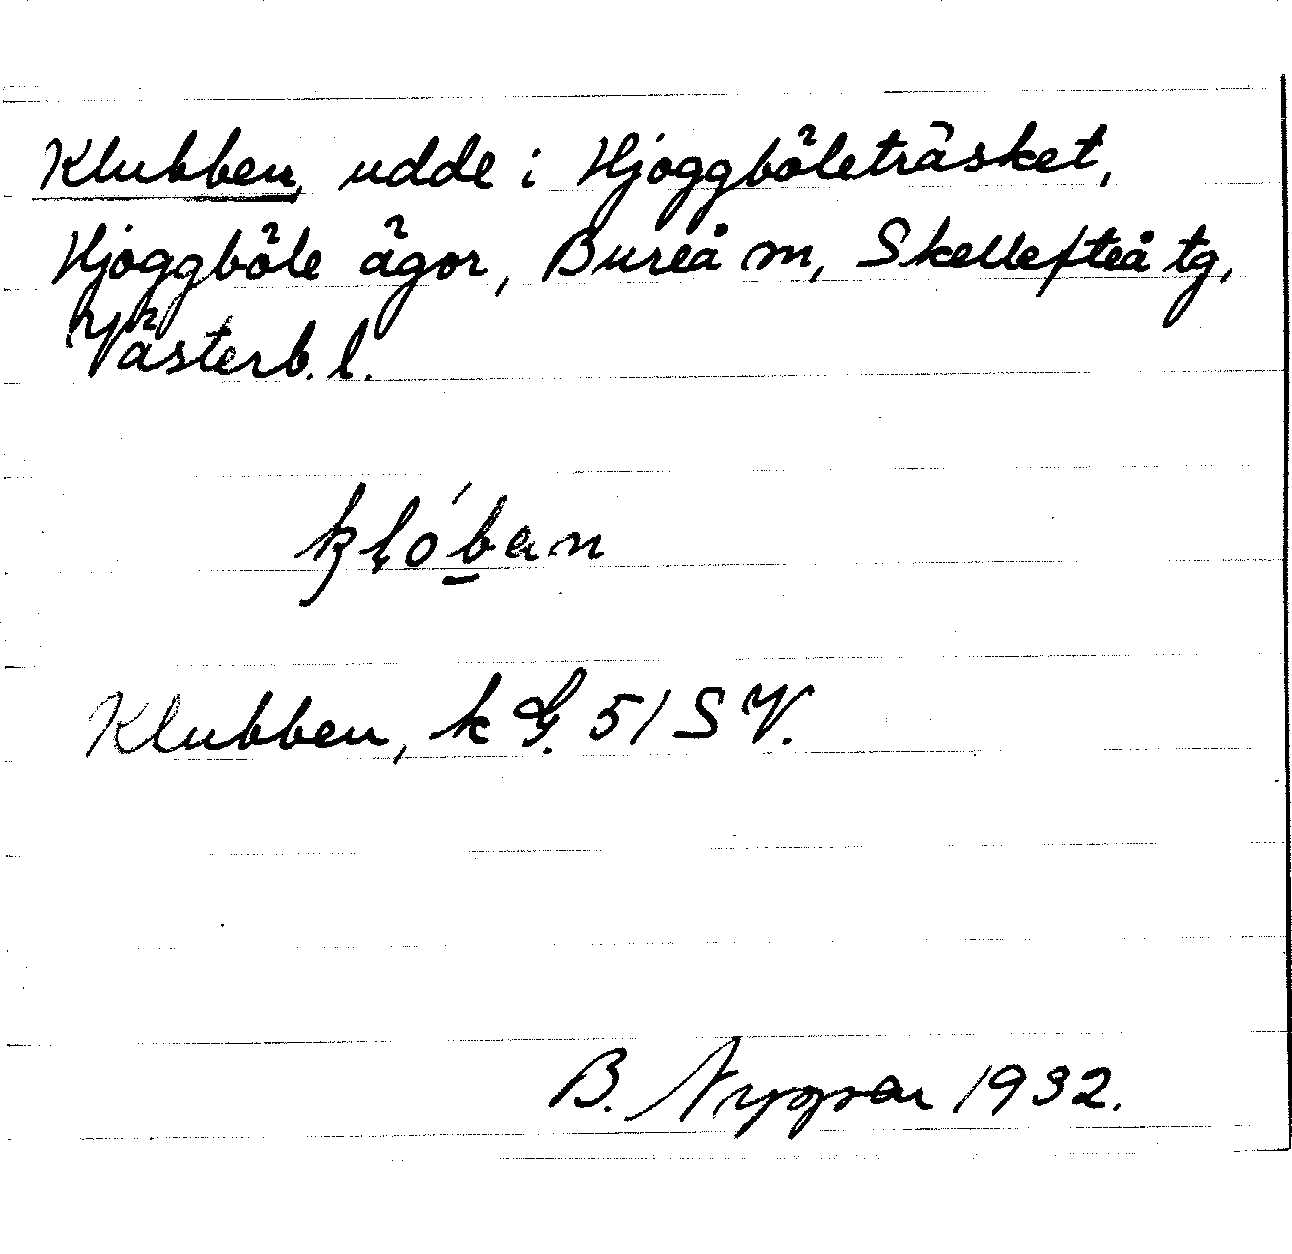 Klubben, udde i Hjoggböleträsket,
Hjoggböle ägor, Bureå m, Skellefteå tg,
Västerb. l.
klóban
Klubben, k G. 51 S V.
B. 1932.